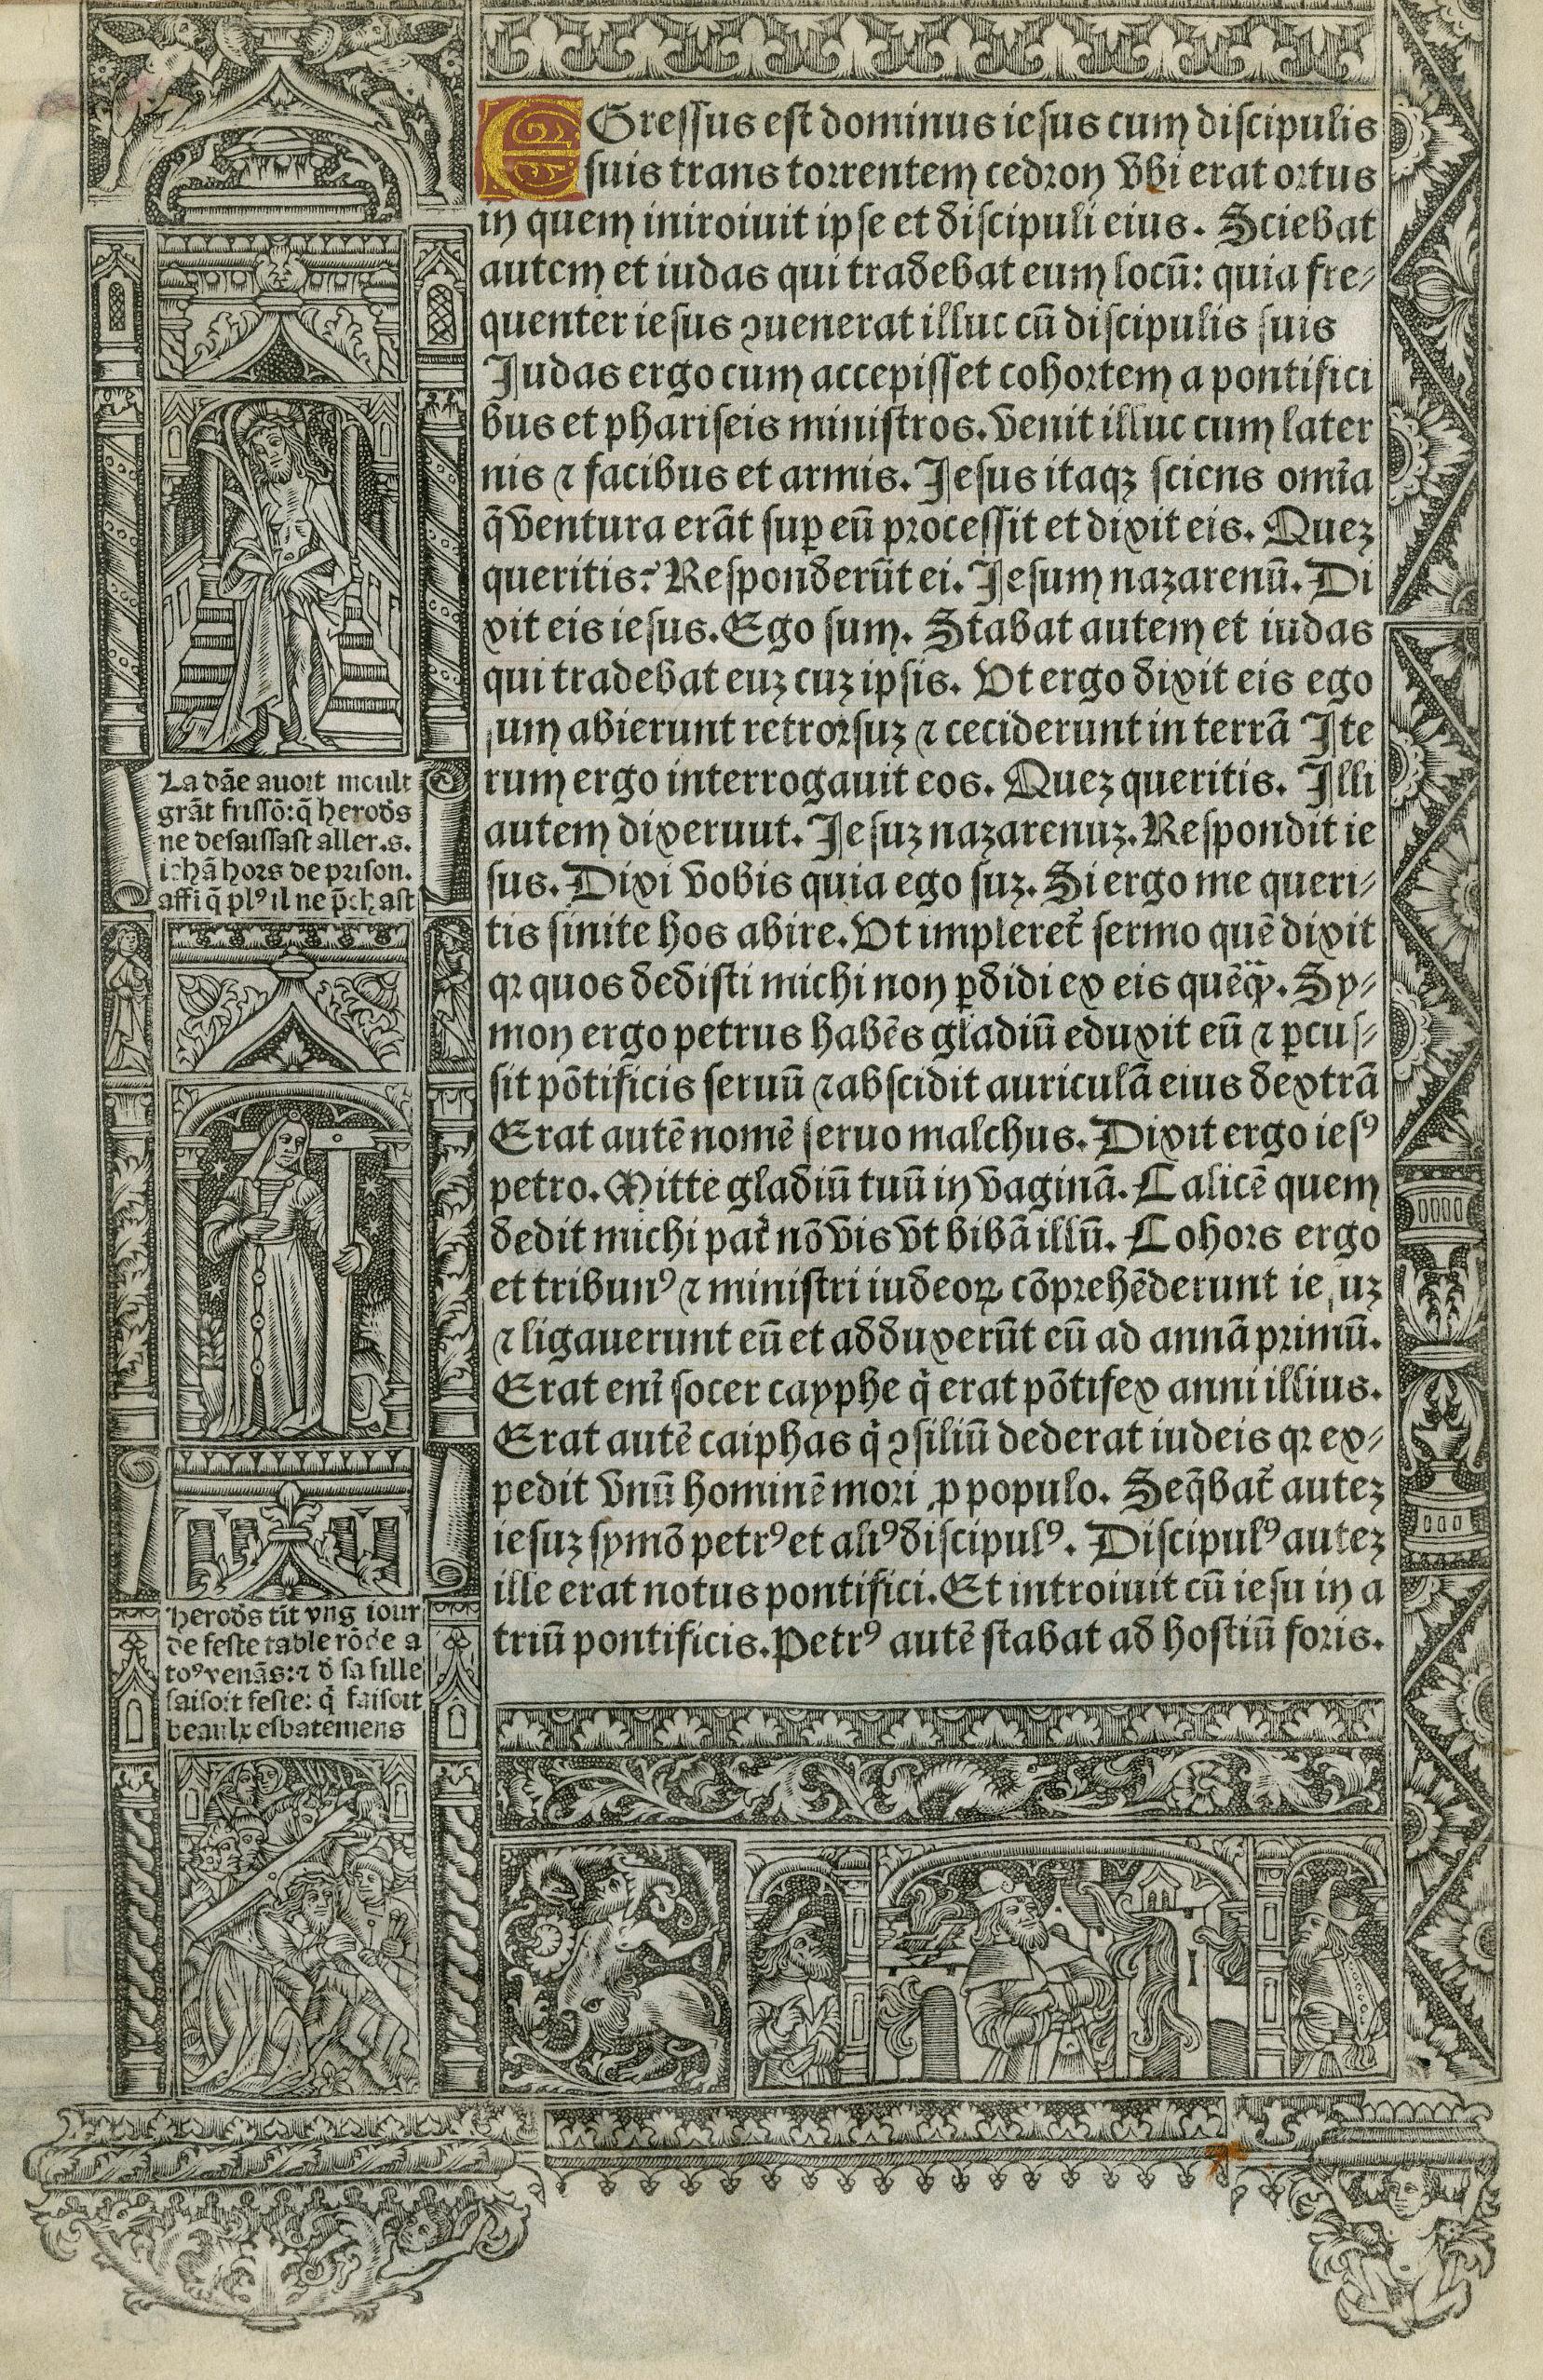 EGressus est dominus iesus cum discipulis
suis trans torrentem cedron vbi erat ortus
in quem iniroiuit ipse et discipuli eius. Sciebat
autem et iudas qui tradebat eum locū: quia fre⸗
quenter iesus ꝯuenerat illuc cū discipulis suis
Judas ergo cum accepisset cohortem a pontifici
bus et phariseis ministros. venit illuc cum later
nis ⁊ facibus et armis. Jesus itaqꝫ sciens omīa
q̄ ventura erāt suꝑ eū processit et dixit eis. Queꝫ
queritis? Responderūt ei. Jesum nazarenū. Di
xit eis iesus. Ego sum. Stabat autem et iudas
qui tradebat euꝫ cuꝫ ipsis. Vt ergo dixit eis ego
sum abierunt retrorsuꝫ ⁊ ceciderunt in terrā Ite
rum ergo interrogauit eos. Queꝫ queritis. Illi
autem dixeruut. Jesuꝫ nazarenuꝫ. Respondit ie
sus. Dixi vobis quia ego suꝫ. Si ergo me queri⸗
tis sinite hos abire. Vt impleret᷑ sermo quē dixit
qꝛ quos dedisti michi non ꝑdidi ex eis quēq̄ꝫ. Sy⸗
mon ergo petrus habēs gladiū eduxit eū ⁊ ꝑcus⸗
sit pōtificis seruū ⁊ abscidit auriculā eius dextrā
Erat autē nomē seruo malchus. Dixit ergo iesꝰ
petro. Mitte gladiū tuū in vaginā. Calicē quem
dedit michi pat᷑ nō vis vt bibā illū. Cohors ergo
et tribunꝰ ⁊ ministri iudeoꝝ cōprehēderunt iesuꝫ
⁊ ligauerunt eū et adduxerūt eū ad annā primū.
Erat enī socer cayphe q̇ erat pōtifex anni illius.
Erat autē caiphas q̇ ꝯsiliū dederat iudeis qꝛ ex⸗
pedit vnū hominē mori ꝓ populo. Seq̄bat᷑ auteꝫ
iesuꝫ symō petrꝰ et aliꝰ discipulꝰ. Discipulꝰ auteꝫ
ille erat notus pontifici. Et introiuit cū iesu in a
triū pontificis. Petrꝰ autē stabat ad hostiū foris.
La dāe auoit moult
grāt frissō: q̄ herods
ne desaissast aller .s.
iehā hors de prison.
affi q̄ plꝰ il ne p̄chast
Herods tīt vng iour
de feste table rōde a
toꝰ venās: ⁊ d̄ sa fille
faisoit feste: q̇ faisoit
beaulx esbatemens